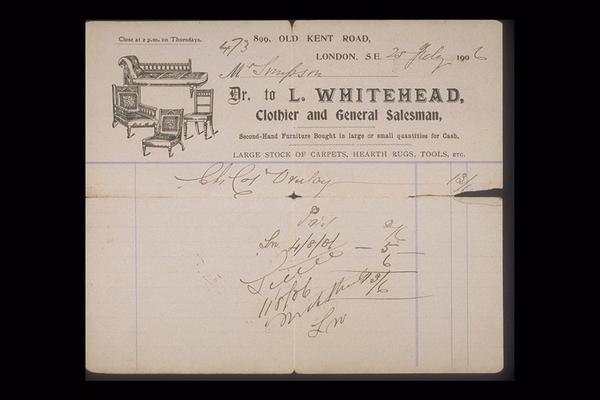 Close at 2 p.m. on Thursdays.
473
899, OLD KENT ROAD,
LONDON, S.E. 25 July 1906
Mr Simpson
Dr. to L. WHITEHEAD,
Clothier and General Salesman,
Second-Hand Furniture Bought in large or small quantities for Cash.
LARGE STOCK OF CARPETS, HEARTH RUGS, TOOLS, ETC.
13/-
Paid 2/-
Lw 4/8/06 — 5
6
11/8/06
Lw